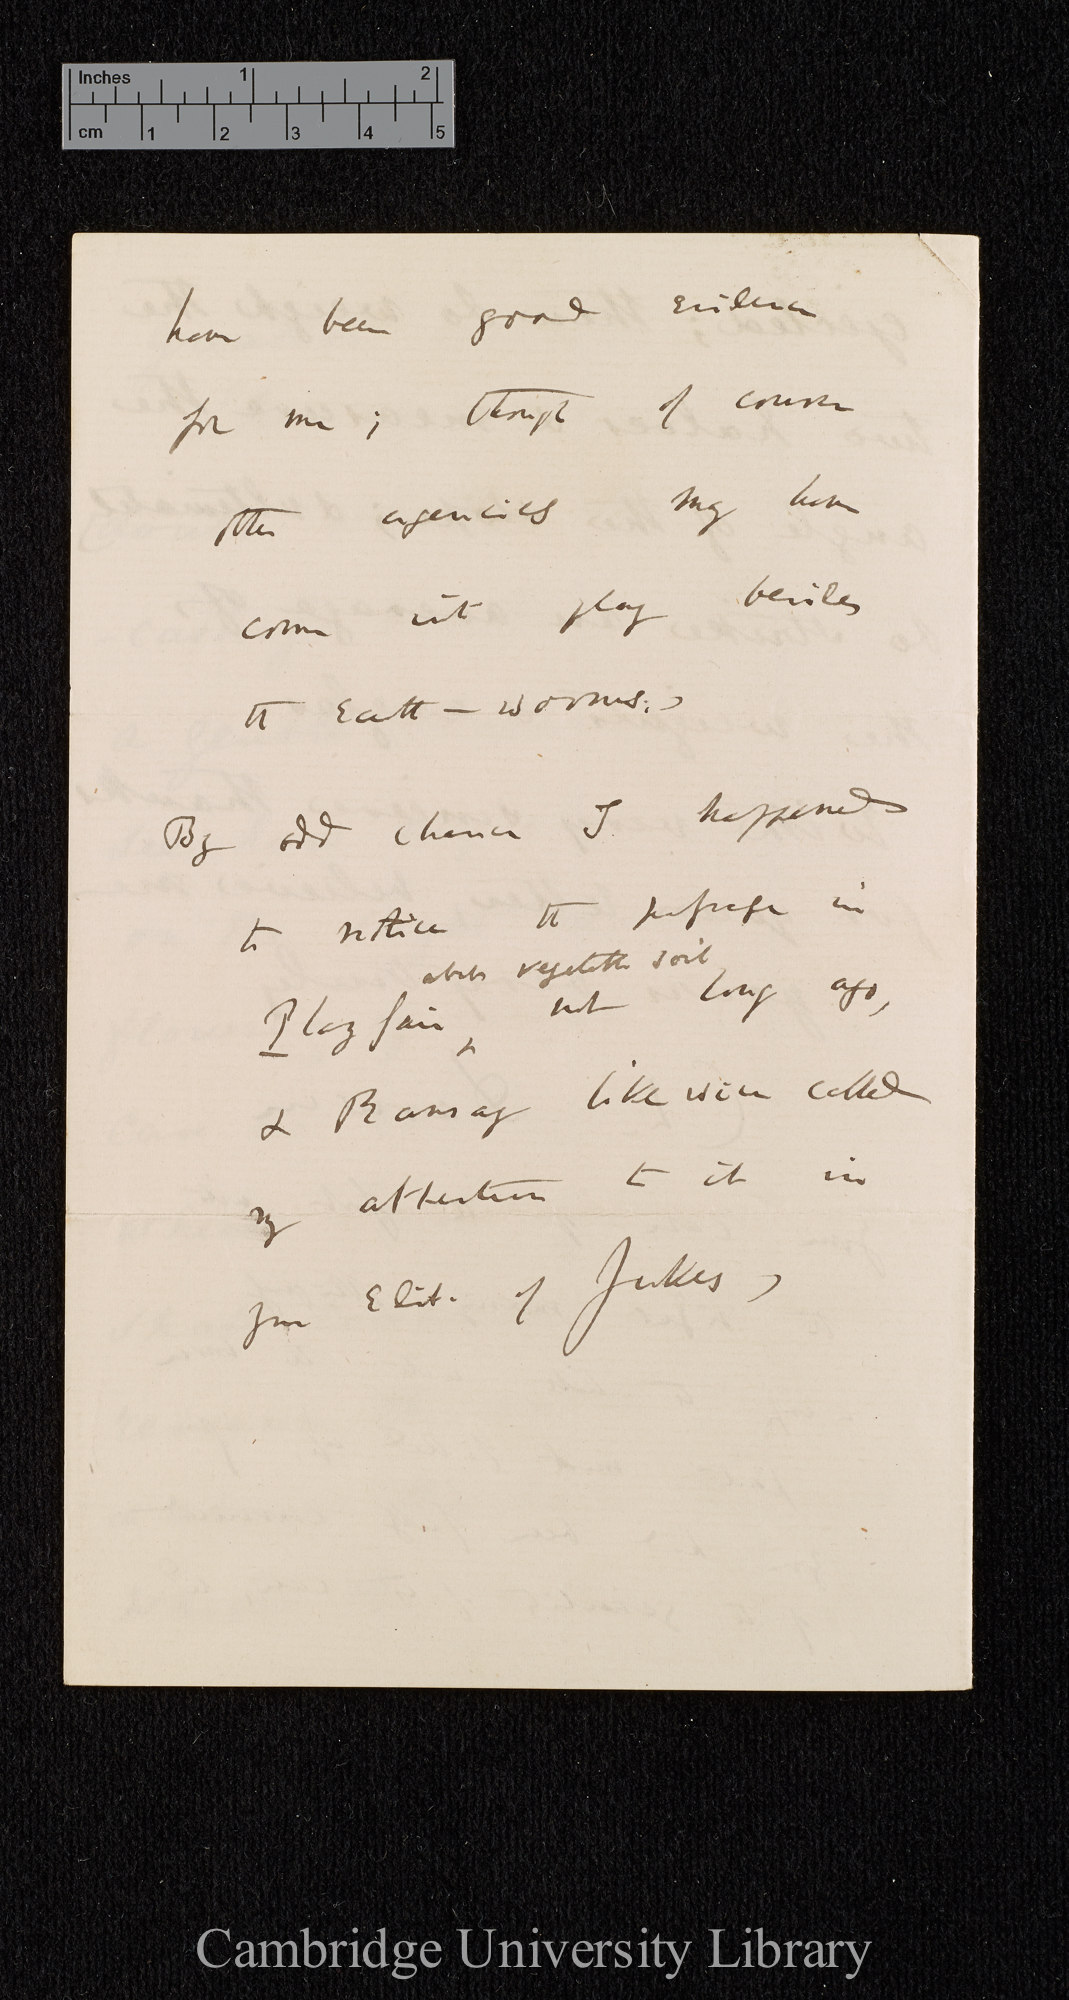 Inches 1 2
cm 1 2 3 4 5
have been good evidence
for me; though of course
other agencies may have
come into play besides
the Earth-worms.
By odd chance I happened
to notice the passage in
about vegetable soil
Playfair, not long ago,
& Ramsay likewise called
my attention to it in
your Edit. of Jukes,
Cambridge University Library